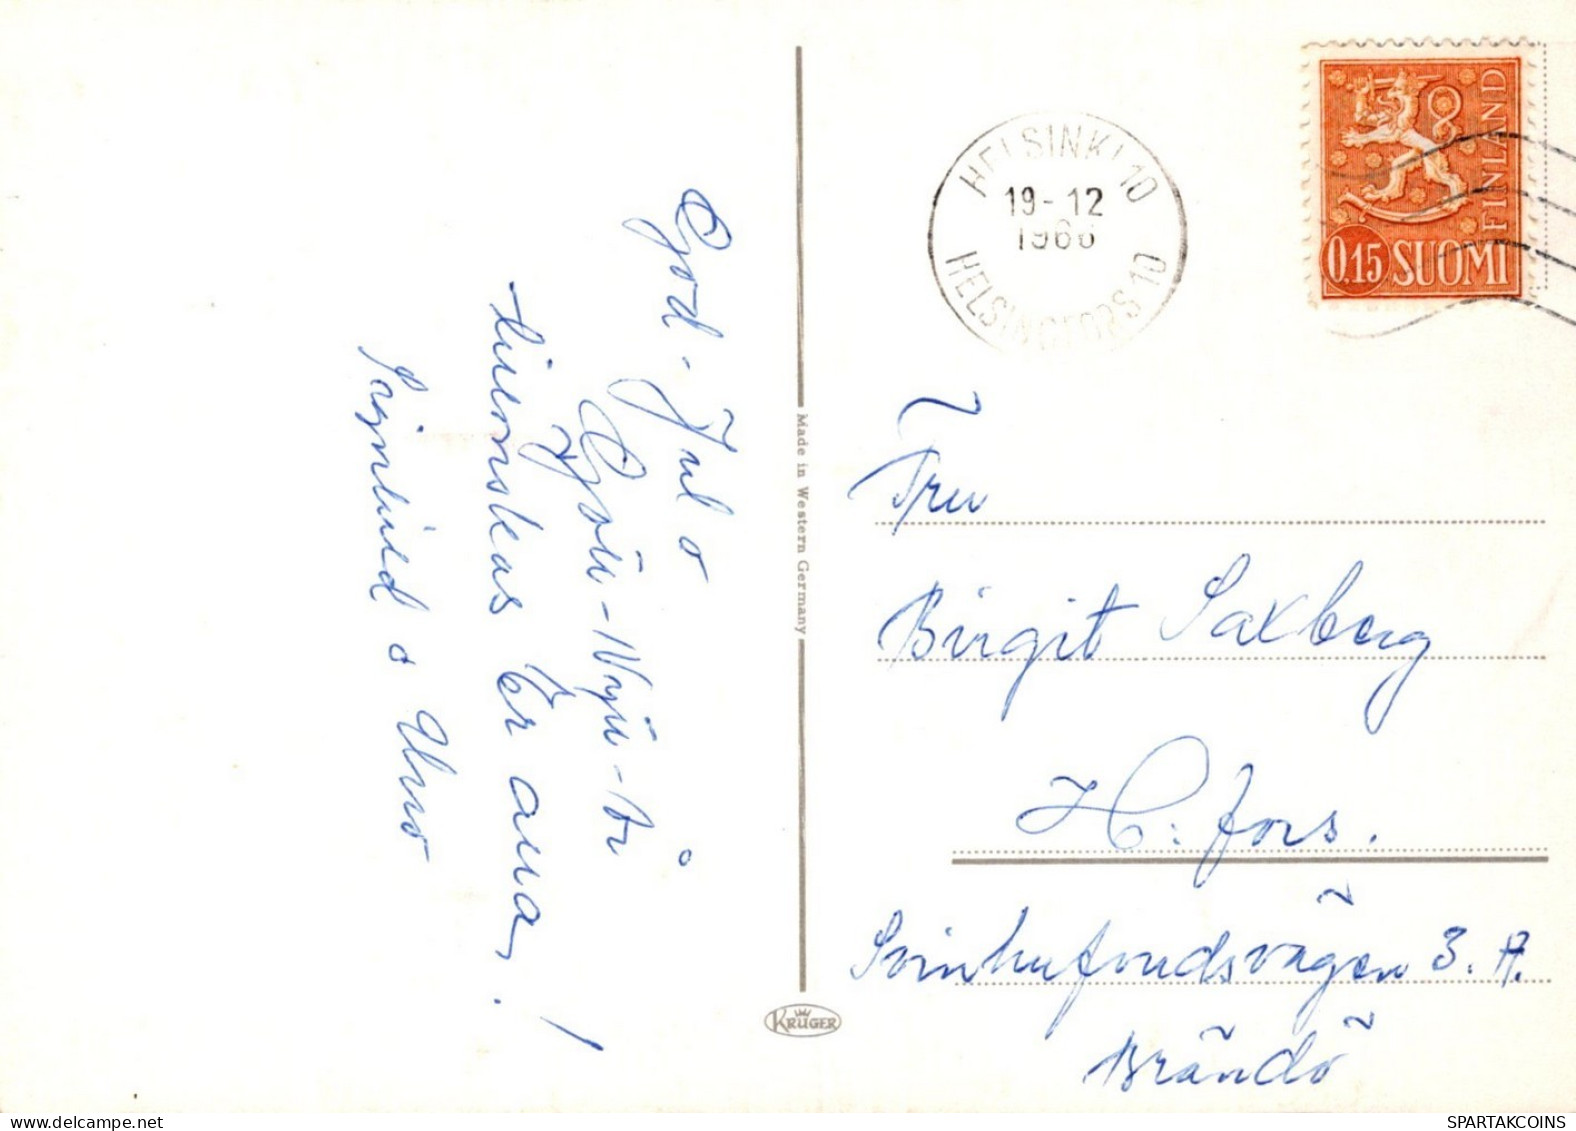 God - Jul o
Gott - Nytt - år
tillönskas Er alla,
Ragnhild o Uuno
Made in Western Germany
KRÜGER
HELSINKI 10
19-12
1966
HELSINGFORS 10
FINLAND
0,15 SUOMI
Fru
Birgit Saxberg
H:fors.
Svinhufvudsvägen 3. A.
Brändö
SPARTAKCOINS